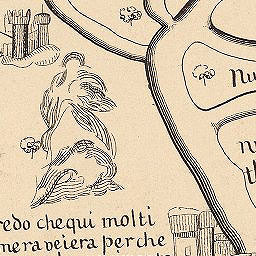 Nu
n
th
redo che qui molti
mera veiera perche